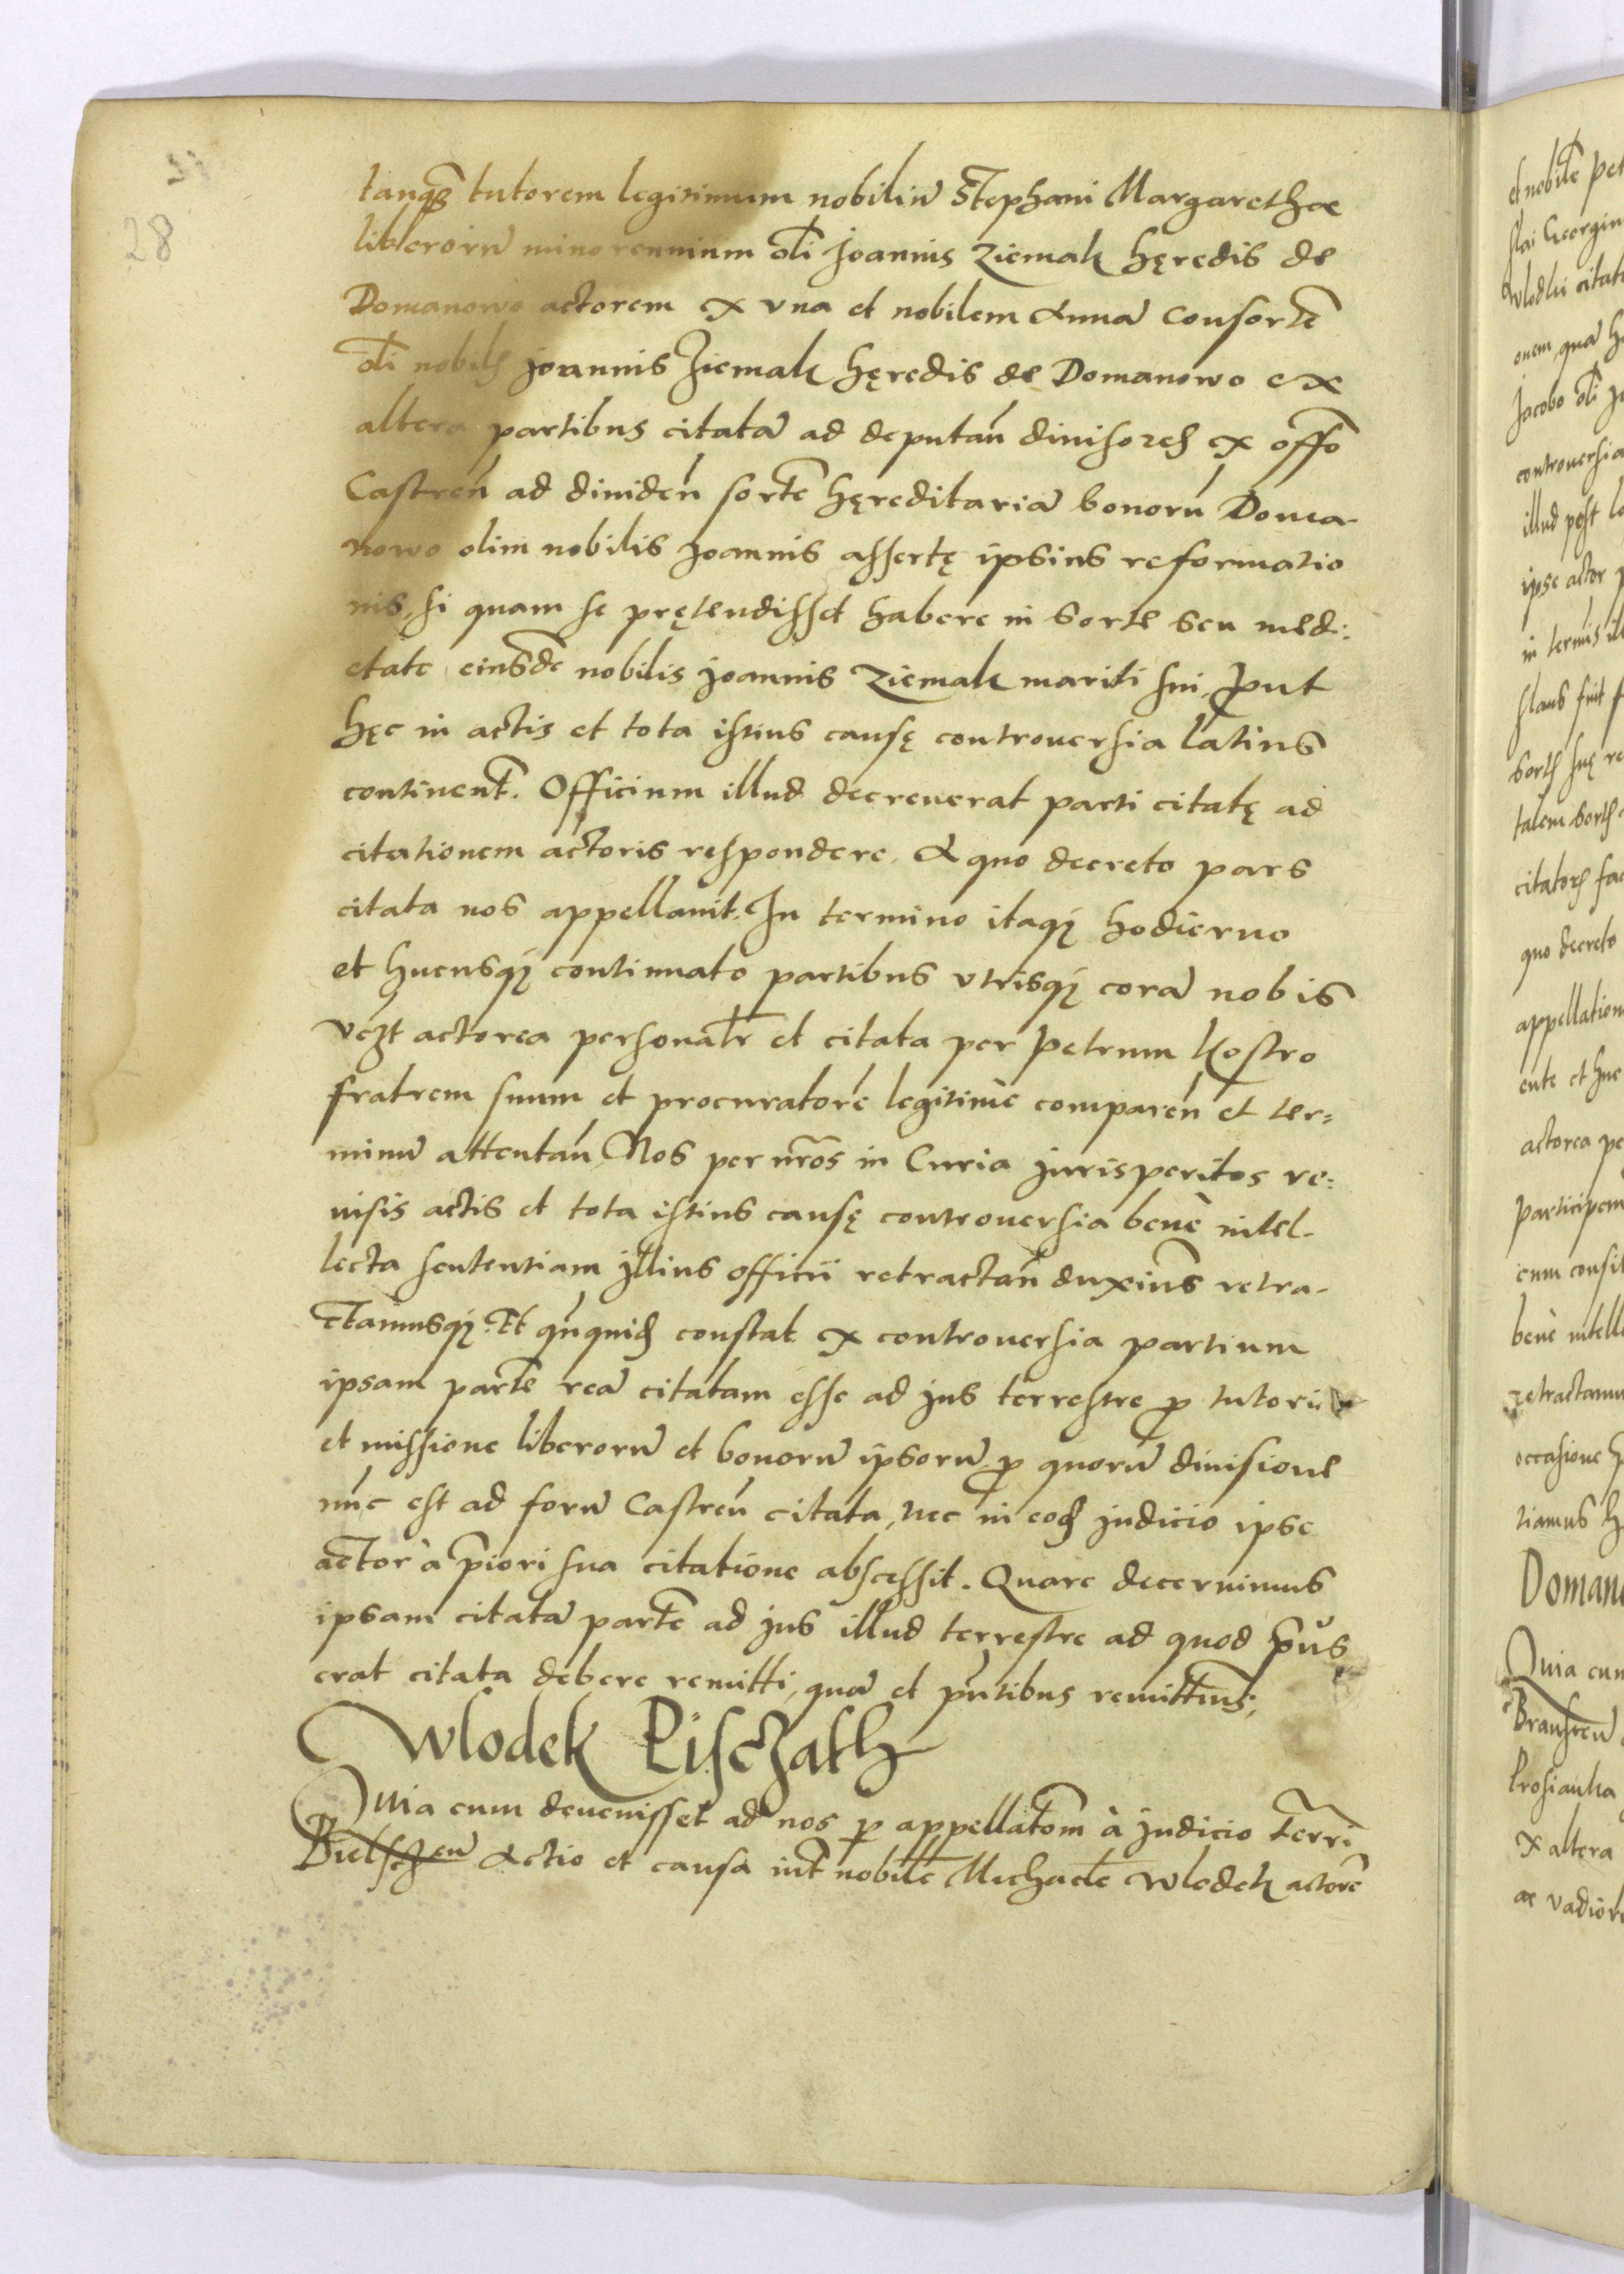 28
tanqꝫ tutorem legitimum nobiliū Stephani Margarethae
liberorū minorennium oli Joannis Ziemak hęredis de
Domanowo actorem ex vna et nobilem Annā Consortē
oli nobil̃ Joannis Ziemak hęredis de Domanowo ex
altera partibus citatā ad deputan̄ diuisores ex offo
Castren̄ ad diuiden̄ sortē hęreditariā bonorū Doma-
nowo olim nobilis Joannis assertę ipsius reformatio
nis, si quam se prętendisset habere in sorte seu medi:
etate eiusdē nobilis Joannis Ziemak mariti sui, ꝓut
hęc in actis et tota istius causę controuersia latius
continent̃. Officium illud decreuerat parti citatę ad
citationem actoris respondere. A quo decreto pars
citata nos appellauit. In termino itaqꝫ hodierno
et hucusqꝫ continuato partibus vtrisqꝫ corā nobis
vꝫt actorea personalr̃ et citata per Petrum Kostro
fratrem suum et procuratorē legitimè comparen̄ et ter=
minū attentan̄ Nos per nr̃os in Curia jurisperitos re=
uisis actis et tota istius causę controuersia benè intel-
lecta sententiam illius officii retractan̄ duximꝰ retra-
ctamusqꝫ. Et qn̄quidẽ constat ex controuersia partium
ipsam partē reā citatam esse ad jus terrestre ꝓ tutoria
et missione liberorū et bonorū ipsorū ꝓ quorū diuisione
nūc est ad forū Castren̄ citata, nec in eodẽ judicio ipse
actor à p̃iori sua citatione abscessit. Quare decernimus
ipsam citatā partē ad jus illud terrestre ad quod p̃us
erat citata debere remitti, quā et pn̄tibus remittimꝰ.
Wlodek Pisczath
Quia cum deuenisset ad nos ꝑ appellatōm à judicio terrī
Bielsczen̄ Actio et causa int̃ nobilē Michaelē Wlodek actorē
et nobilē Pet
slai Georgiu
Wlodki citat
onem, quā h
Jacobo oli J
controuersia
illud post
ipse actor
slaus fuit
citator̃ fa
quo decreto
appellation
ente et huc
actorea pe
cum consil
benè intelle
retractamu
occasione h
Domano
Quia cum
x altera